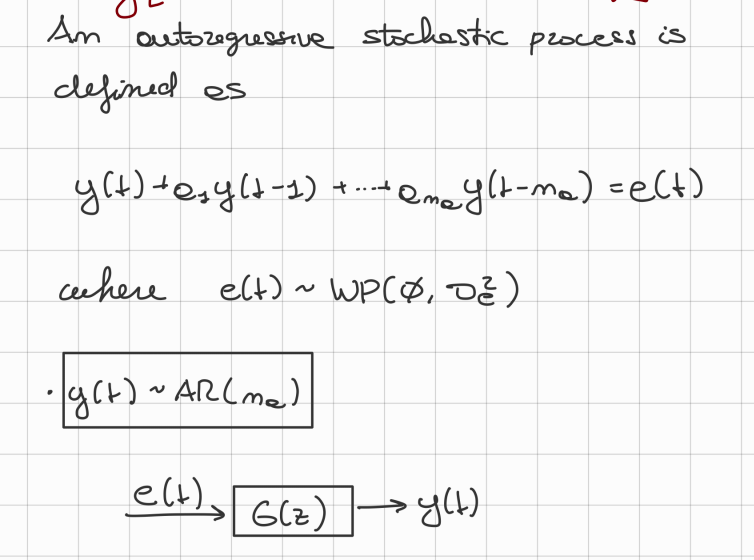 An autoregressive stochastic process is
defined as
y(t) + a₁y(t-1) + ... + aₙₐy(t-nₐ) = e(t)
where e(t) ~ WP(∅, σₑ²)
· y(t) ~ AR(nₐ)
e(t) → G(z) → y(t)